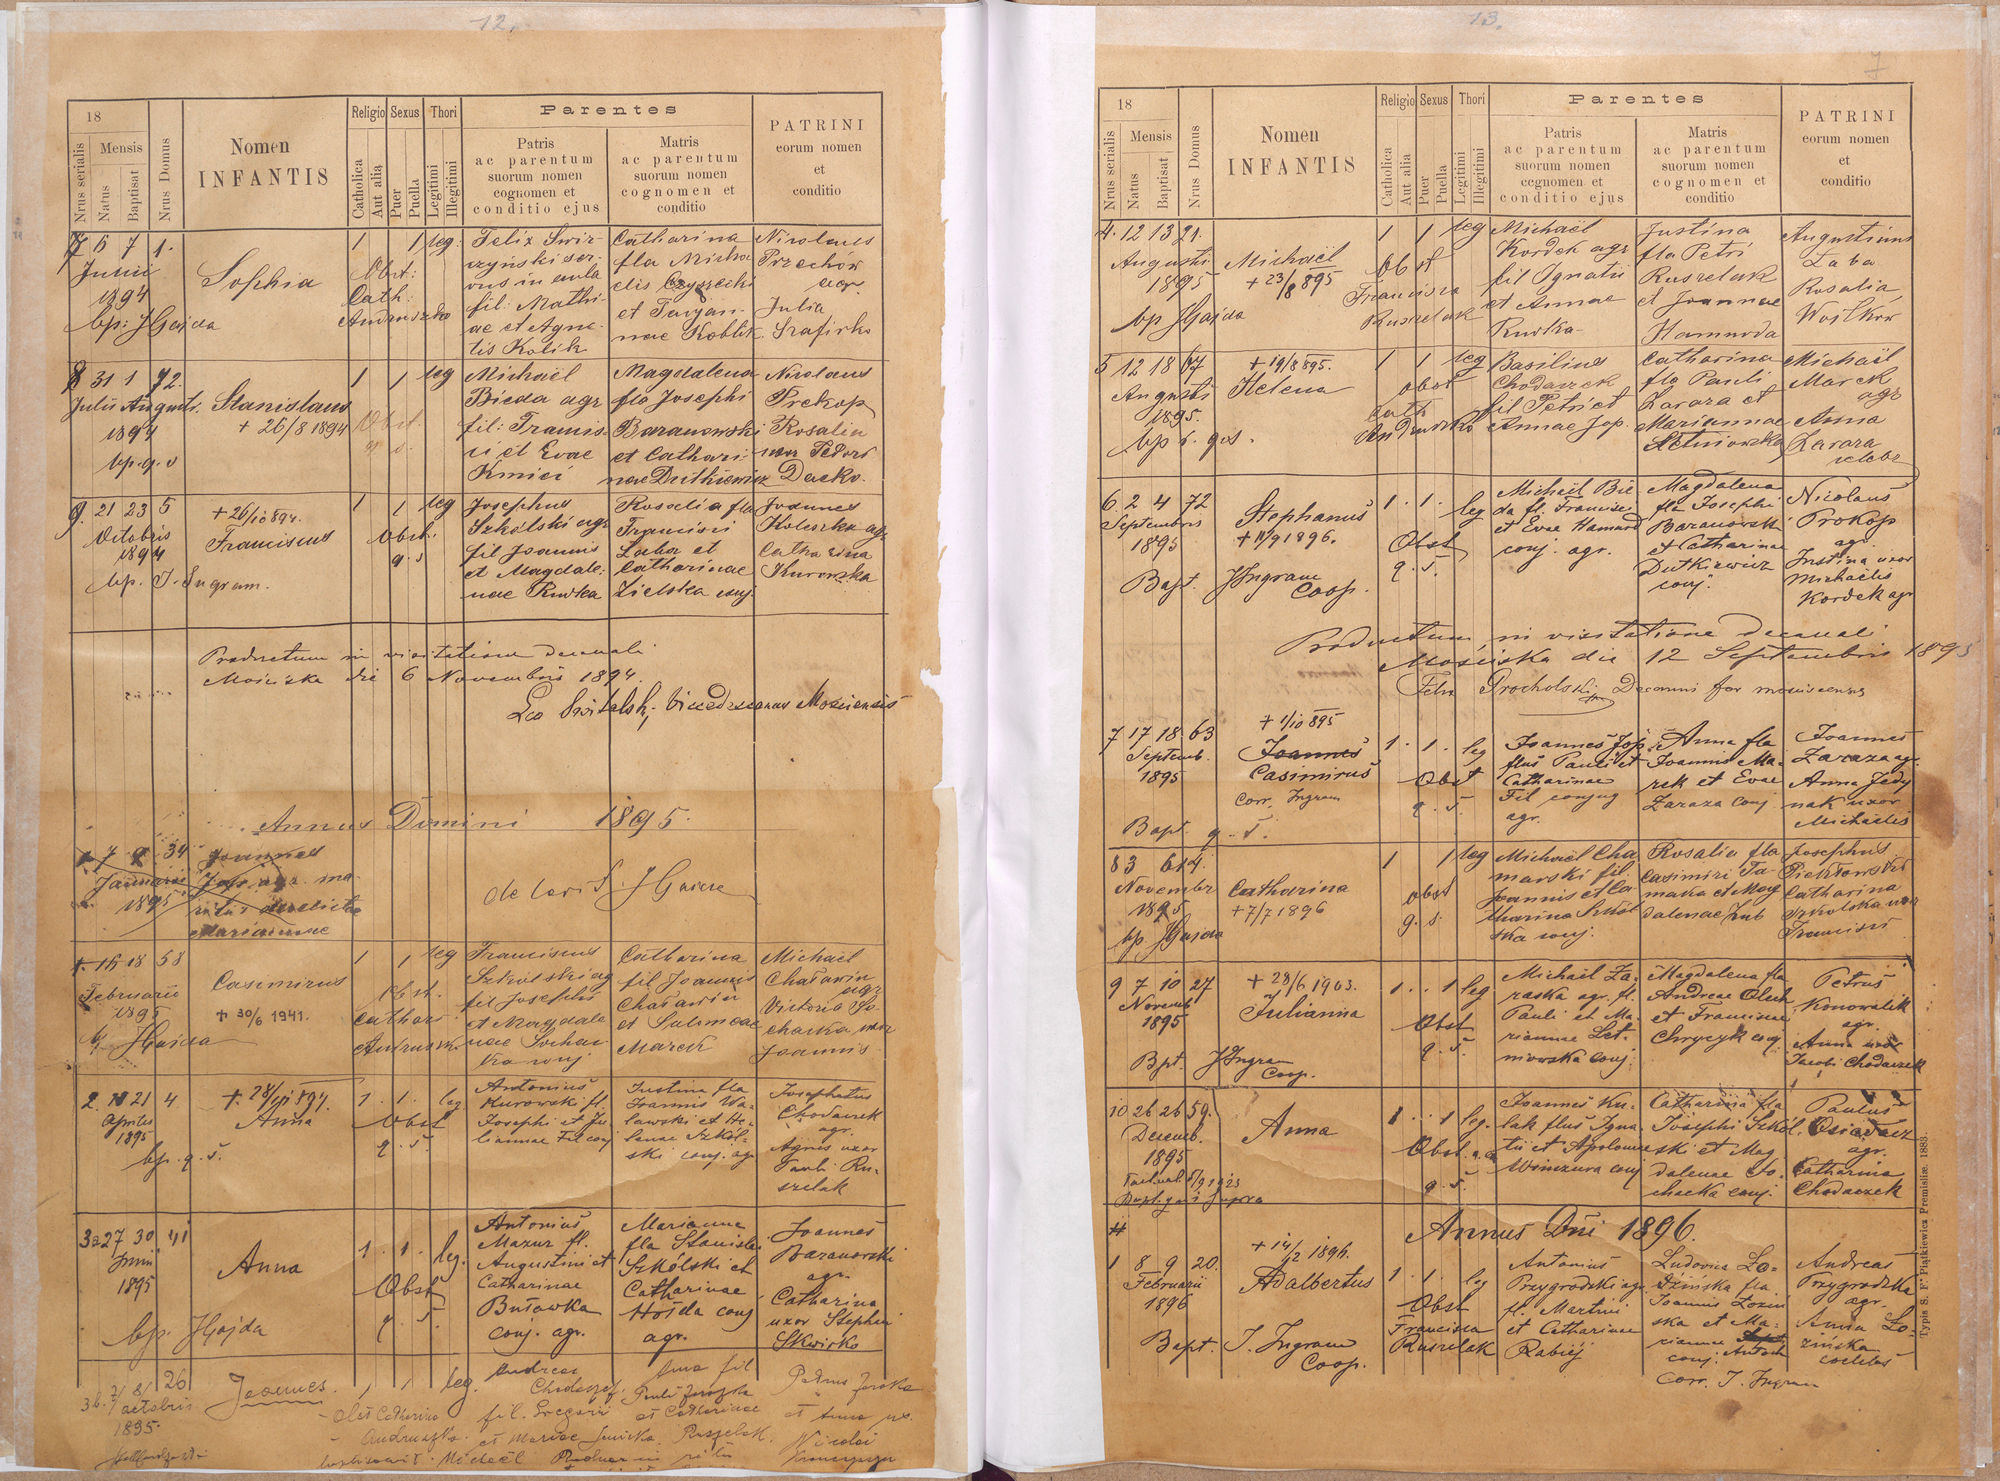 12.
18
Nrus serialis
Mensis
Natus
Baptisat
Nrus Domus
Nomen
INFANTIS
Religio
Catholica
Aut alia
Sexus
Puer
Puella
Thori
Legitimi
Illegitimi
Parentes
Patris
ac parentum
suorum nomen
cognomen et
conditio ejus
Matris
ac parentum
suorum nomen
cognomen et
conditio
PATRINI
eorum nomen
et
conditio
7 6 7 1.
Junii
1894
bp: JGajda
Sophia
1 1 leg:
Obst:
Cath:
Andruszko
Felix Swir-
czyński ser-
vus in aula
fil: Mathi-
ae et Agne-
tis Kolik
Catharina
fla Micha
elis
et Taryan-
nae Koblik.
Nicolaus
Przechów
agr.
Julia
Szafirko
8 31 1 72.
Julii Augusti.
1894
bp. q. s
Stanislaus
+ 26/8 1894
1 1 leg
Obst.
q. s.
Michaël
Bieda agr
fil: Francis-
ci et Evae
Kmieć
Magdalena
fla Josephi
Baranowski
et Cathari-
nae Dutkiewicz
Nicolaus
Prokop
Rosalia
uxor Fedori
Dacko.
9. 21 23 5
Octobris
1894
bp. J. Ingram.
+ 26/10 894.
Franciscus
1 1 leg
Obst.
q. s
Josephus
Szkólski agr
fil Joannis
et Magdale-
nae Rurka
Rosalia fla
Francisci
Laba et
Catharinae
Zielska conj.
Joannes
Koleszka agr
Catharina
Kurowska
Productum in visitatione decanali
Mościska die 6 Novembris 1894.
Leo Switalski, Vicedecanus Mosciensis
Annus Domini 1895.
7 9 34
Januarii
1895
Joannes
Jop. agr. ma-
ritus derelictae
Mariannae
delevit JGajda
1. 16 18 58
Februarii
1895
bp JGajda
Casimirus
+ 30/6 1941.
1 1 leg
Obst.
Cathar.
Andruszk.
Franciscus
Szkolski ag
fil Josephi
et Magdale
nae Sochac
ka conj
Catharina
fil Joannis
Chatawin
et Salomeae
Marek
Michael
Chatawin
agr
Victoria So
chacka uxor
Joannis
2. 18 21 4
Aprilis
1895
bp. q. s.
+ 28/VI 897.
Anna
1. 1. leg
Obst
q. s.
Antonius
Kurowski fl.
Josephi et Ju
liannae Fil conj
Justina fla
Joannis Wa-
lawski et He-
lenae Szkól-
ski conj. agr
Josephatus
Chodaczek
agr.
Agnes uxor
Pauli Ru-
szelak
3a 27 30 41
Junii
1895
bp. JGajda
Anna
1. 1. leg.
Obst
q. s.
Antonius
Mazur fl.
Augustini et
Catharinae
Butawka
conj. agr.
Marianna
fla Stanislai
Szkólski et
Catharinae
Hojda conj
agr.
Joannes
Baranowski
agr.
Catharina
uxor Stephani
Skwirko
3b. 7/ 8/ 26
octobris
1895.
Joannes.
1 1 leg.
Obst Catharina
Andruszko.
Andreas
Chodaczek.
fil. Gregorii
et Mariae
Anna fil
Pauli Zaraska
et Catharinae
Ruszelak.
Petrus Zaraska
et Anna ux.
Nicolai
baptisavit. Michaël
13.
7
18
Nrus serialis
Mensis
Natus
Baptisat
Nrus Domus
Nomen
INFANTIS
Religio
Catholica
Aut alia
Sexus
Puer
Puella
Thori
Legitimi
Illegitimi
Parentes
Patris
ac parentum
suorum nomen
cognomen et
conditio ejus
Matris
ac parentum
suorum nomen
cognomen et
conditio
PATRINI
eorum nomen
et
conditio
4. 12 13 21.
Augusti
1895
bp JGajda
Michaël
+ 23/8 895
1 1 leg
Obst
Francisca
Ruszelak
Michaël
Kordek agr
fil Ignatii
et Annae
Rurka
Justina
fla Petri
Ruszelak
et Joannae
Hamurda
Augustinus
Laba
Rosalia
Wojtków
5 12 18 67
Augusti
1895.
bp s. q. s.
+ 19/8 895.
Helena
1 1 leg
obst
Cath
Andruszko
Basilius
Chodaczek
fil Petri et
Annae Jop.
Catharina
fla Pauli
Zaraza et
Mariannae
Letniowska
Michaël
Marek
agr
Anna
Zaraza
celebs
6. 2 4 72
Septembris
1895
Bapt. JIngram
Coop.
Stephanus
+ 11/9 1896.
1. 1. leg
Obst
q. s.
Michaël Bie
da fl. Francisci
et Evae Hamurd
conj. agr.
Magdalena
fla Josephi
Baranowski
et Catharinae
Dutkiewicz
conj.
Nicolaus
Prokop
agr
Justina uxor
Michaëlis
Kordek agr
Productum in visitatione decanali
Mościska die 12 Septembris 1895
Felix Procholski Decanus for mosciscensis
7 17 18 63
Septemb.
1895
Bapt q. s.
+ 1/10 895
Joannes
Casimirus
Corr. Ingram
1. 1. leg
Obst
q. s.
Joannes Jop
flus Pauli et
Catharinae
Fil conjug
agr.
Anna fla
Joannis Ma-
rek et Evae
Zaraza conj
Joannes
Zaraza agr.
Anna Jedy
nak uxor
Michaelis
8 3 6 14
Novembr
1895
bp JGajda
Catharina
+ 7/7 1896
1 1 leg
obst
q. s.
Michaël Cha
marski fil.
Joannis et Ca
tharina Szkól
ska conj.
Rosalia fla
Casimiri Ta-
maka et Mag
dalenae Zub
Josephus
Catharina
Szkolska uxor
Francisci
9 7 10 27
Novemb
1895
Bpt. JIngram
Coop.
+ 28/6 1903.
Julianna
1. . 1 leg
Obst
q. s.
Michaël Za-
raska agr. fl.
Pauli et Ma-
riannae Let-
niowska conj.
Magdalena fla
Andreae Olech
et Franciscae
Chryczyk conj
Petrus
Konowalik
agr.
Anna uxor
Jacobi Chodaczek
10 26 26 59.
Decemb.
1895
Bapt. q. s supra
Anna
1. . 1 leg.
Obst.
q. s.
Joannes Ku-
lak flus Igna-
tii et Apoloniae
Winczura conj
Catharina fla
Josephi Szkól-
ski et Mag
dalenae So-
chacka conj.
Paulus
Osiadacz
agr.
Catharina
Chodaczek
Annus Dni 1896.
1 8 9 20.
Februarii
1896
Bapt. J. Ingram
Coop.
+ 14/2 1896.
Adalbertus
1. 1. leg
Obst
Francisca
Ruszelak
Antonius
Przygrodzki agr.
fl. Martini
et Catharinae
Rabiej
Ludovica Lo-
zińska fla
Joannis Lozin
ska et Ma-
riannae
conj. Antoch
Corr. J. Ingram
Andreas
Przygrodzka
agr.
Anna Lo-
zińska
coelebs
Typis S. F. Piątkiewicz Premisliæ. 1883.